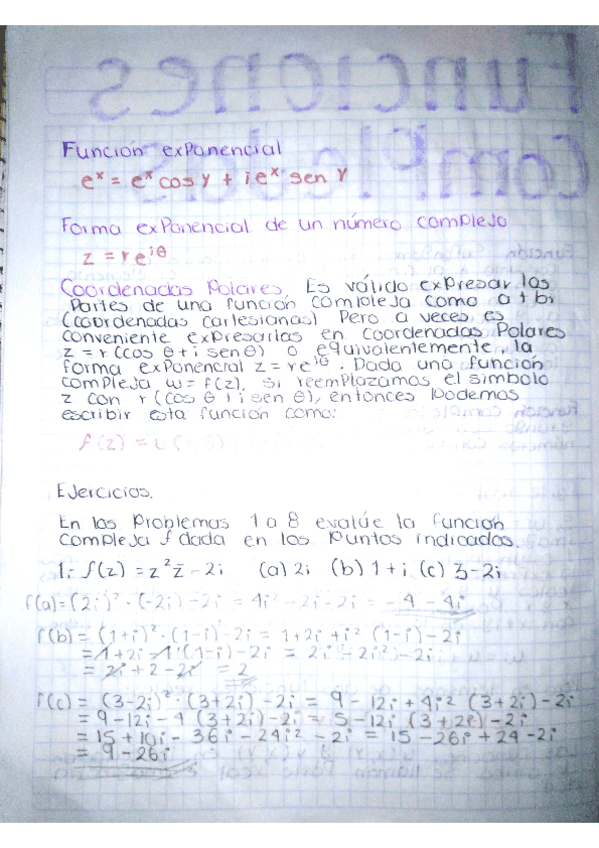 Función exponencial
e^x = e^x cos y + i e^x sen y
Forma exponencial de un número complejo
z = r e^iθ
Coordenadas Polares. Es válido expresar las
partes de una función compleja como a + bi
(coordenadas cartesianas) Pero a veces es
conveniente expresarlas en coordenadas Polares
z = r (cos θ + i sen θ) o equivalentemente, la
forma exponencial z = r e^iθ. Dada una función
compleja w = f(z), si reemplazamos el símbolo
z con r (cos θ + i sen θ), entonces podemos
escribir esta función como:
f(z) = u (
Ejercicios.
En los Problemas 1 a 8 evalúe la función
compleja f dada en los puntos indicados.
1.- f(z) = z² z̄ - 2i (a) 2i (b) 1 + i (c) 3 - 2i
f(a) = (2i)² · (-2i) - 2i = 4i² - 2i - 2i = - 4 - 4i
f(b) = (1+i)² · (1-i) - 2i = 1 + 2i + i² (1-i) - 2i
= 1 + 2i - 1 (1-i) - 2i = 2i - 2i²) - 2i
= 2i + 2 - 2i = 2
f(c) = (3-2i)² · (3+2i) - 2i = 9 - 12i + 4i² (3+2i) - 2i
= 9 - 12i - 4 (3+2i) - 2i = 5 - 12i (3+2i) - 2i
= 15 + 10i - 36i - 24i² - 2i = 15 - 26i + 24 - 2i
= 9 - 26i